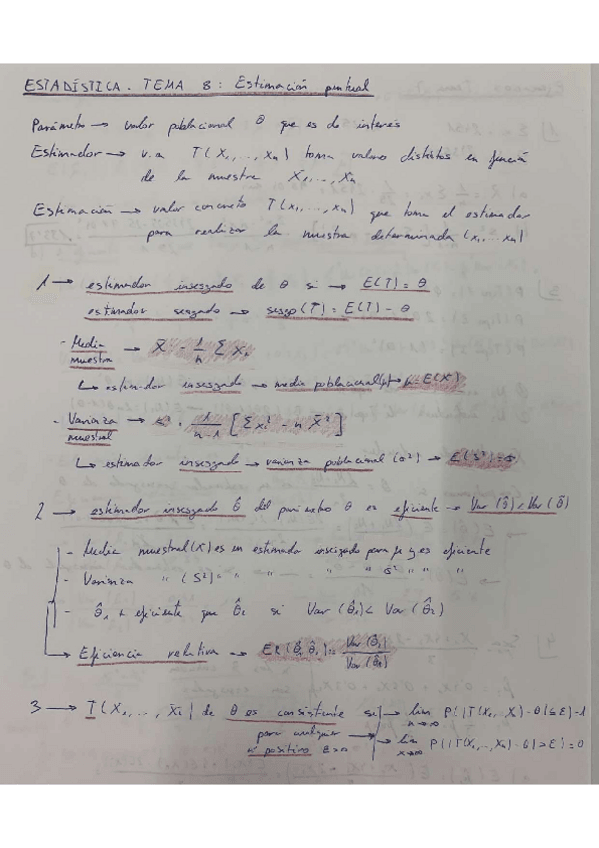 ESTADÍSTICA. TEMA 8: Estimación puntual
Parámetro → valor poblacional θ que es de interés
Estimador → v.a T(X₁,..., Xₙ) toma valores distintos en función
de la muestra X₁,..., Xₙ
Estimación → valor concreto T(x₁,..., xₙ) que toma el estimador
para realizar la muestra determinada (x₁,... xₙ)
1 → estimador insesgado de θ si → E(T) = θ
estimador sesgado → sesgo(T) = E(T) - θ
- Media muestra → X̄ = 1/n Σ Xᵢ
↳ estimador insesgado → media poblacional(μ) → μ = E(X̄)
- Varianza muestral → 1/n-1 [Σx² - n X̄²]
↳ estimador insesgado → varianza poblacional (σ²) → E(S²) = σ
2 → estimador insesgado θ̂ del parámetro θ es eficiente → Var (θ̂) < Var (θ̃)
- Media muestral (X̄) es un estimador insesgado para μ y es eficiente
- Varianza " (S²) " " " " S² " " "
- θ̂₁ + eficiente que θ̂₂ si Var (θ̂₁) < Var (θ̂₂)
→ Eficiencia relativa → ER (θ̂₂ θ̂₁) = Var (θ̂₁) / Var (θ̂₂)
3 → T(X₁,..., Xₙ) de θ es consistente si → lim n→∞ P(|T(X₁,..., X) - θ| ≤ ε) = 1
para cualquier
nº positivo ε>0 → lim x→∞ P(|T(X₁,..., Xₙ) - θ| > ε) = 0